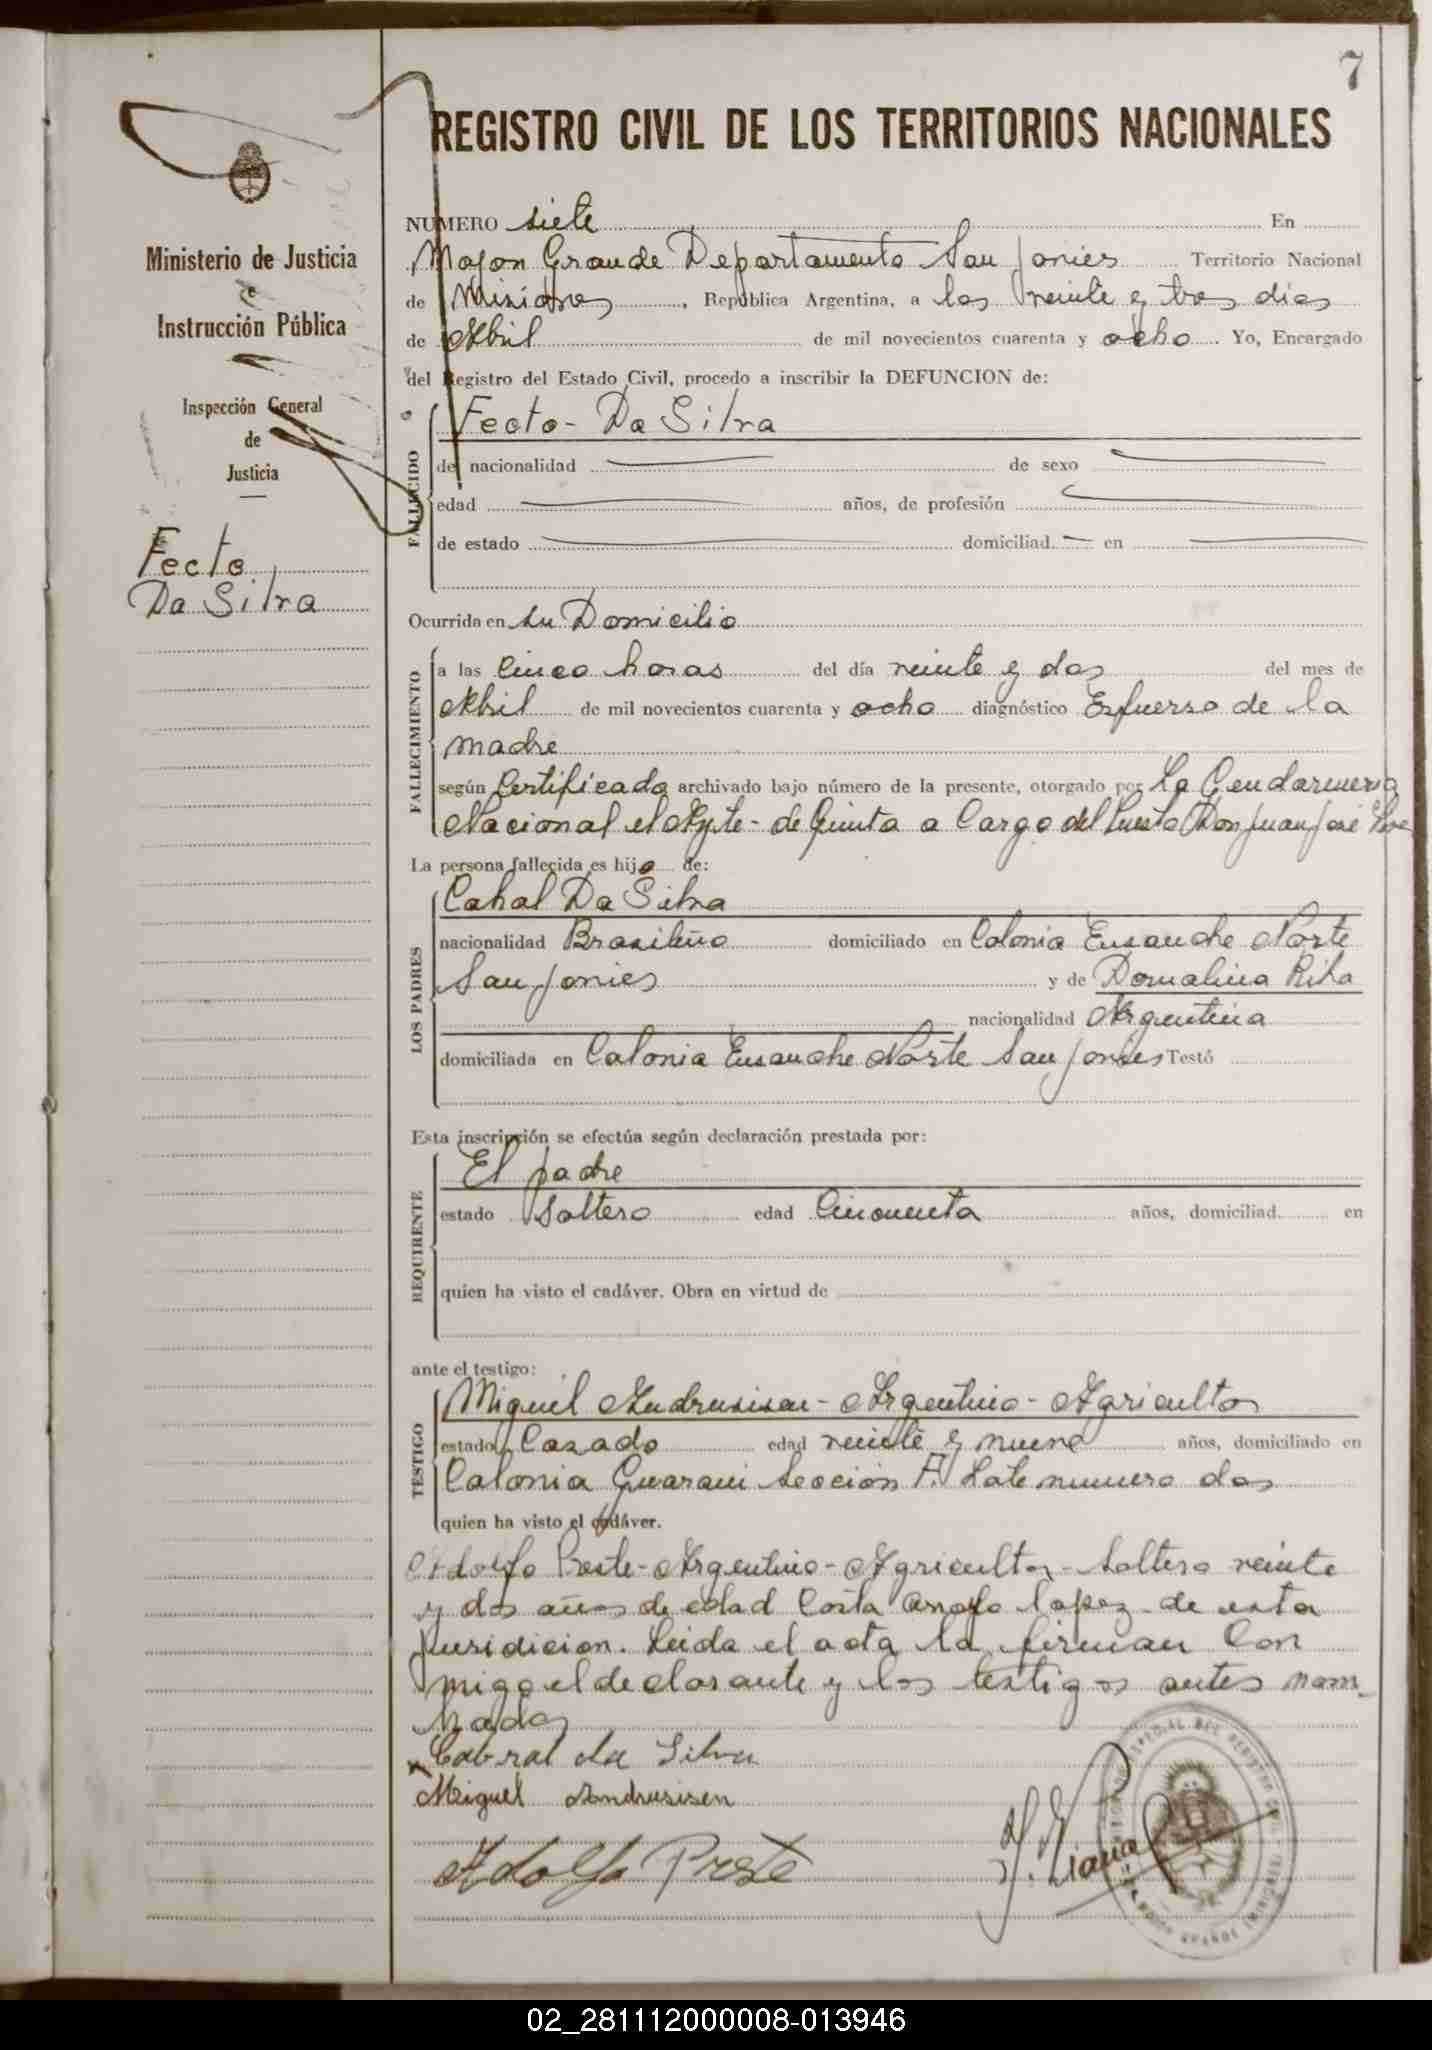 7
REGISTRO CIVIL DE LOS TERRITORIOS NACIONALES
Ministerio de Justicia
e
Instrucción Pública
Inspección General
de
Justicia
Fecto
Da Silva
NUMERO siete En
Mojon Grande Departamento San Javier Territorio Nacional
de Misiones, República Argentina, a los veinte y tres dias
de Abril de mil novecientos cuarenta y ocho Yo, Encargado
del Registro del Estado Civil, procedo a inscribir la DEFUNCION de:
FALLECIDO
Fecto - Da Silva
de nacionalidad de sexo
edad años, de profesión
de estado domiciliad en
Ocurrida en su Domicilio
FALLECIMIENTO
a las Cinco horas del día veinte y dos del mes de
Abril de mil novecientos cuarenta y ocho diagnóstico Esfuerso de la
madre
según Certificado archivado bajo número de la presente, otorgado por La Gendarmeria
Nacional el Ayte - de Quinta a Cargo del Puesto Don Juan José
La persona fallecida es hijo de:
LOS PADRES
Cabral Da Silva
nacionalidad Brasileño domiciliado en Colonia Ensanche Norte
San Javier y de Domalina
nacionalidad Argentina
domiciliada en Colonia Ensanche Norte San Javier Testó
Esta inscripción se efectúa según declaración prestada por:
REQUIRENTE
El padre
estado Soltero edad Cincuenta años, domiciliad en
quien ha visto el cadáver. Obra en virtud de
ante el testigo:
TESTIGO
Miguel Andrusisen - Argentino - Agricultor
estado Casado edad veinte y nueve años, domiciliado en
Colonia Guarani Seccion F. Lote numero dos
quien ha visto el cadáver.
Adolfo Preste - Argentino - Agricultor - Soltero veinte
y dos años de edad Costa arroyo lopez de esta
Jurisdicion. Leida el acta la firman Con
migo el declarante y los testigos antes nom-
brados
x Cabral da Silva
Miguel Andrusisen
Adolfo Preste
02_281112000008-013946